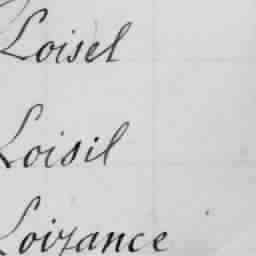 Loisel
Loisil
Loizance